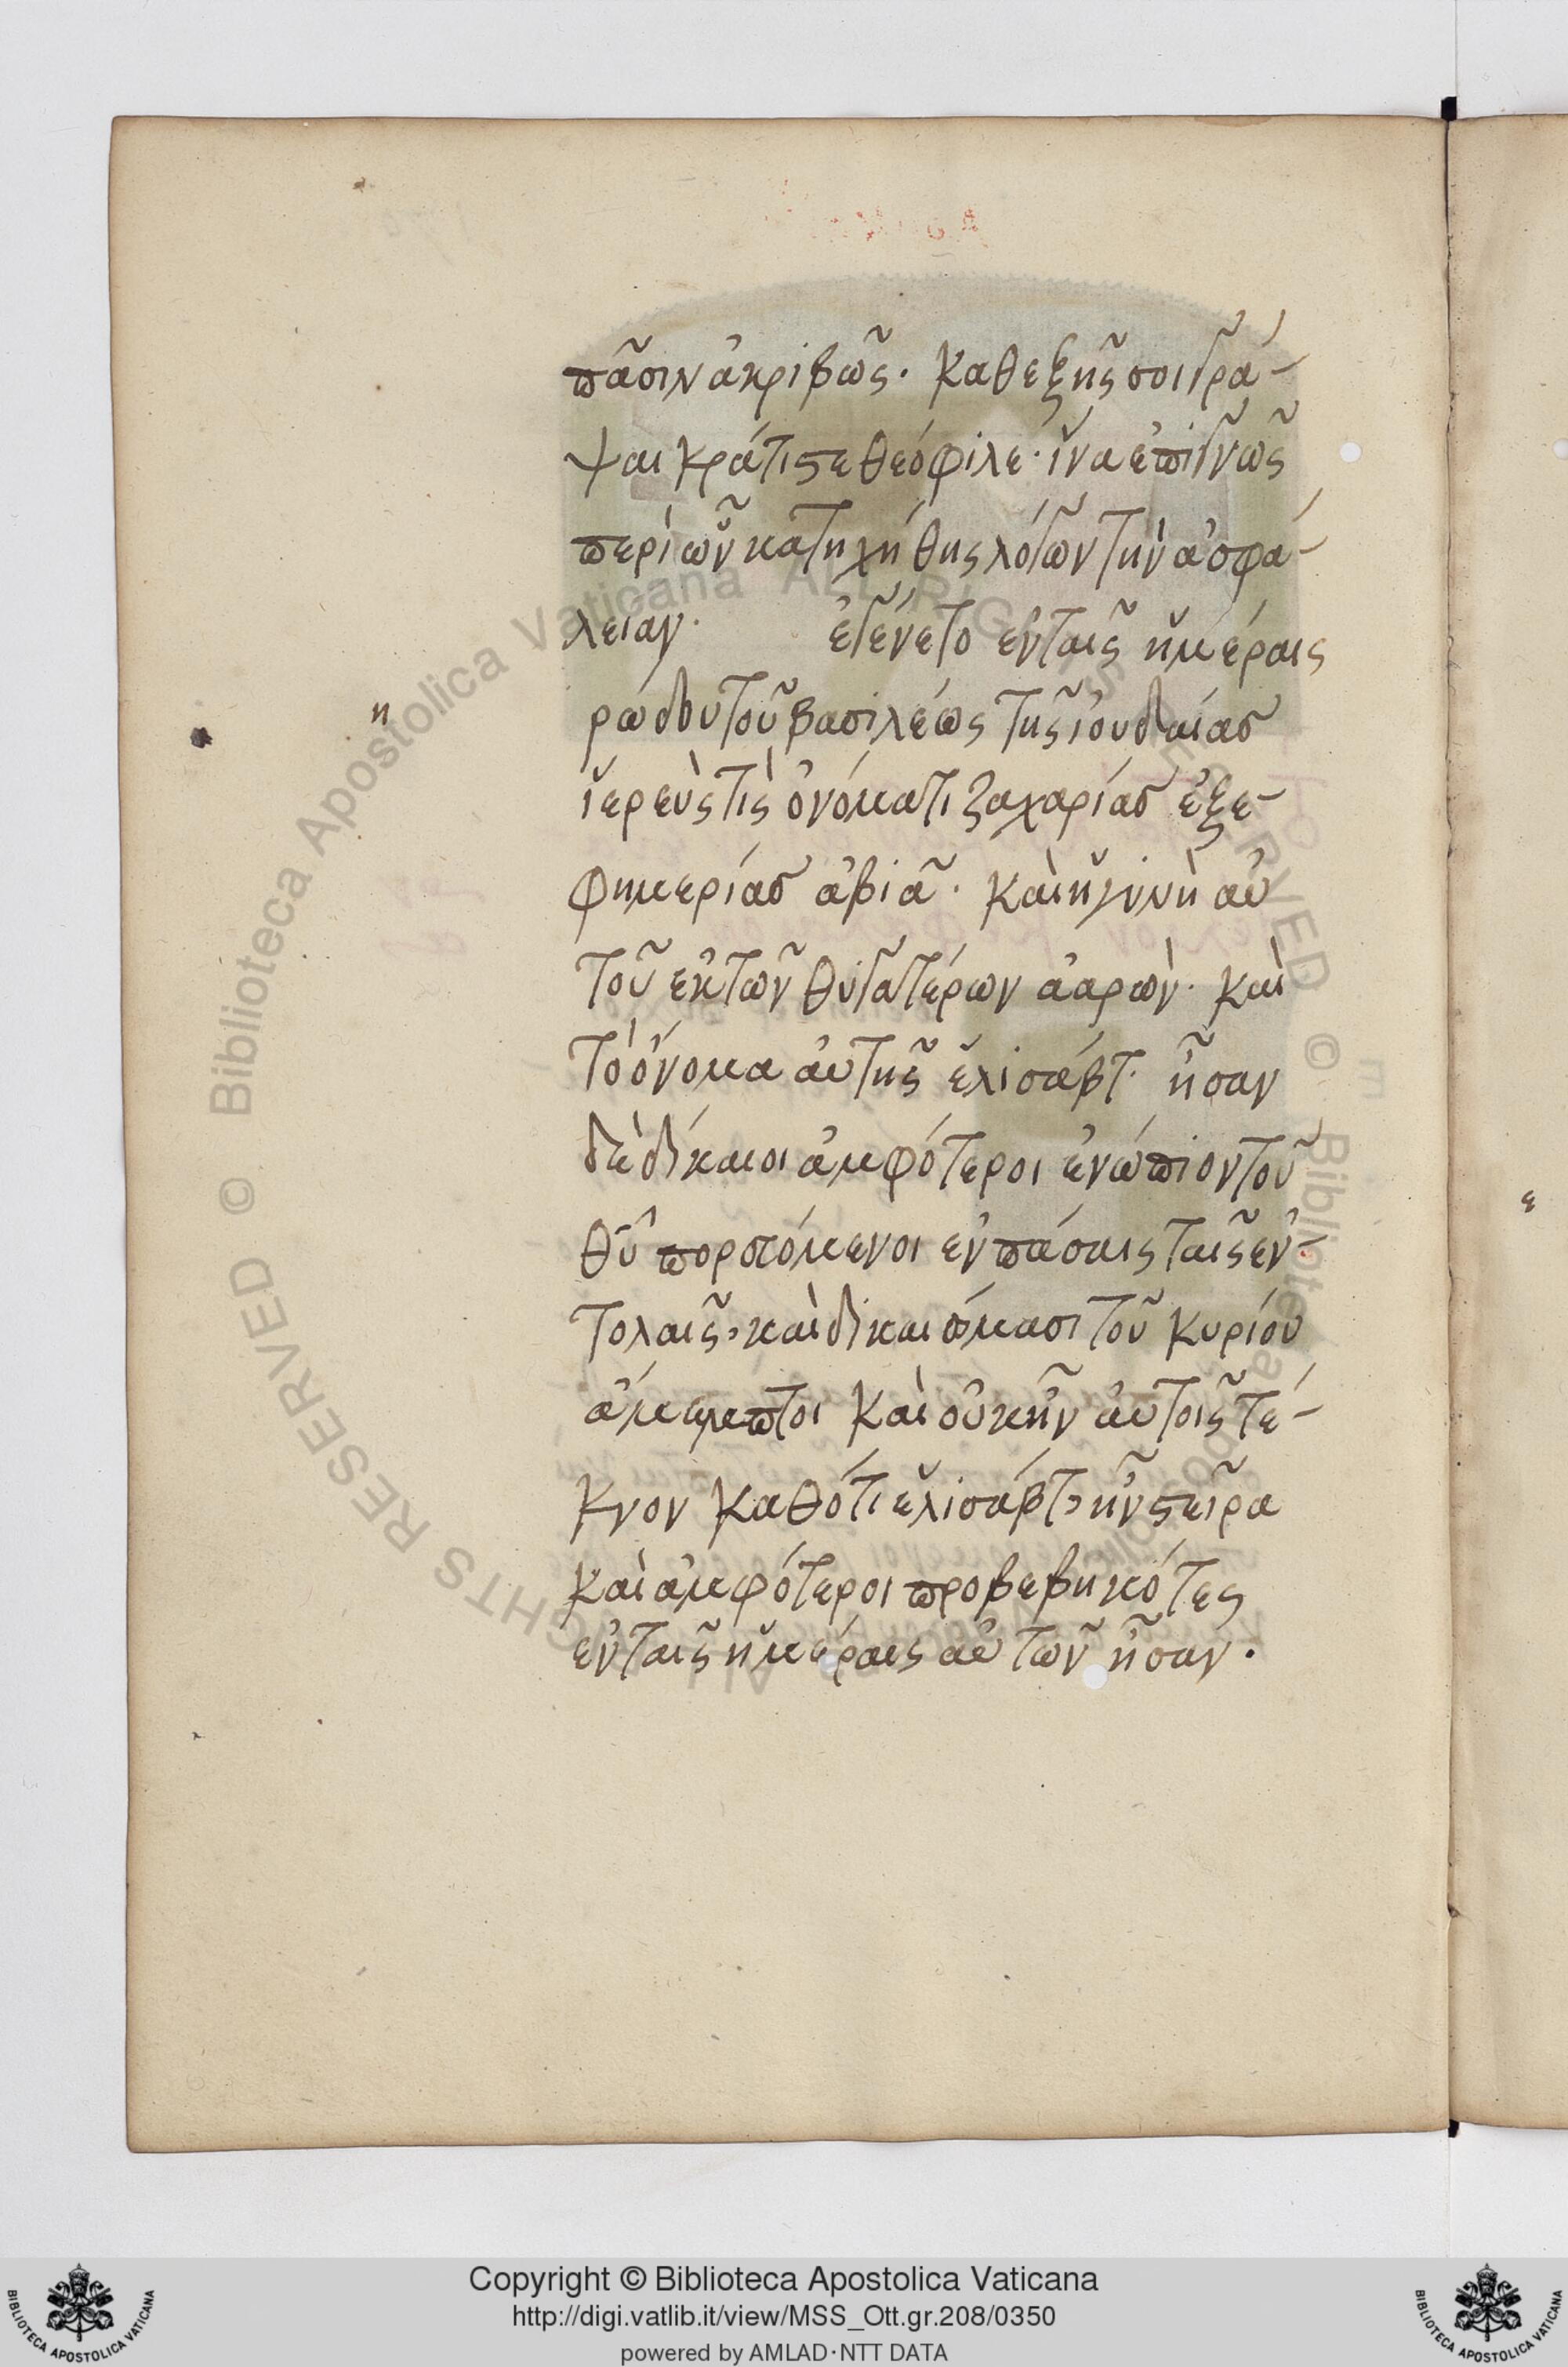 πᾶσιν ἀκριβῶς. καθεξῆς σοι γρά-
ψαι κράτιστε θεόφιλε· ἵνα ἐπιγνῶς
περὶ ὧν κατηχήθης λόγων τὴν ἀσφά-
λειαν. ἐγένετο ἐν ταῖς ἡμέραις
η
ρώδου τοῦ βασιλέως τῆς ἰουδαίας
ἱερεὺς τὶς ὀνόματι ζαχαρίας ἐξ ἐ-
φημερίας ἀβιᾶ. καὶ ἡ γυνὴ αὐ
τοῦ ἐκ τῶν θυγατέρων ἀαρών. καὶ
τὸ ὄνομα αὐτῆς ἐλισάβετ. ἦσαν
δὲ δίκαιοι ἀμφότεροι ἐνώπιον τοῦ
θῦ πορευόμενοι ἐν πάσαις ταῖς ἐν-
τολαῖς, καὶ δικαιώμασι τοῦ κυρίου
ἄμεμπτοι καὶ οὐκ ἦν αὐτοῖς τέ-
κνον καθότι ἐλισάβετ, ἦν στεῖρα
καὶ ἀμφότεροι προβεβηκότες
ἐν ταῖς ἡμέραις αὐτῶν ἦσαν.
ε
© Biblioteca Apostolica Vaticana ALL RIGHTS RESERVED © Biblioteca Apostolica Vaticana ALL RIGHTS RESERVED
Copyright © Biblioteca Apostolica Vaticana
http://digi.vatlib.it/view/MSS_Ott.gr.208/0350
powered by AMLAD·NTT DATA
BIBLIOTECA APOSTOLICA VATICANA
BIBLIOTECA APOSTOLICA VATICANA